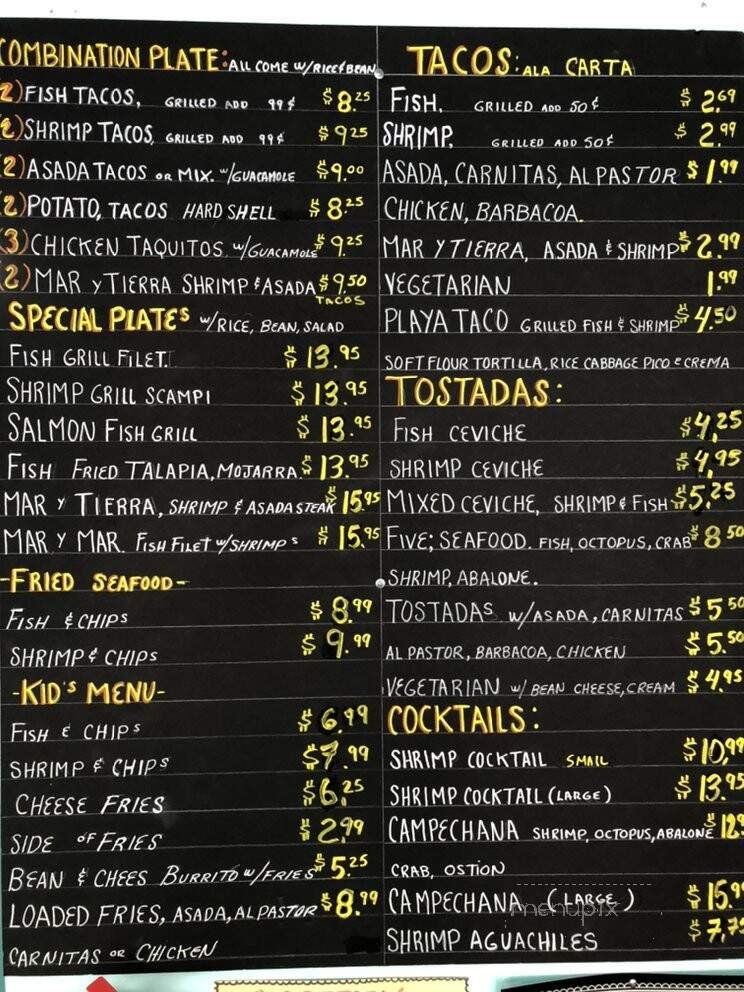 COMBINATION PLATE: ALL COME W/RICE & BEAN
(2) FISH TACOS, GRILLED ADD 99¢ $8.25
(2) SHRIMP TACOS, GRILLED ADD 99¢ $9.25
(2) ASADA TACOS OR MIX. W/GUACAMOLE $9.00
(2) POTATO, TACOS HARD SHELL $8.25
(3) CHICKEN TAQUITOS W/GUACAMOLE $9.25
(2) MAR Y TIERRA SHRIMP & ASADA $9.50
TACOS
SPECIAL PLATES W/RICE, BEAN, SALAD
FISH GRILL FILET. $13.95
SHRIMP GRILL SCAMPI $13.95
SALMON FISH GRILL $13.95
FISH FRIED TALAPIA, MOJARRA $13.95
MAR Y TIERRA, SHRIMP & ASADA STEAK $15.95
MAR Y MAR. FISH FILET W/SHRIMPS $15.95
-FRIED SEAFOOD-
FISH & CHIPS $8.99
SHRIMP & CHIPS $9.99
-KID'S MENU-
FISH & CHIPS $6.99
SHRIMP & CHIPS $7.99
CHEESE FRIES $6.25
SIDE OF FRIES $2.99
BEAN & CHEES BURRITO W/FRIES $5.25
LOADED FRIES, ASADA, AL PASTOR $8.99
CARNITAS OR CHICKEN
TACOS: ALA CARTA
FISH, GRILLED ADD 50¢ $2.69
SHRIMP, GRILLED ADD 50¢ $2.99
ASADA, CARNITAS, AL PASTOR $1.99
CHICKEN, BARBACOA.
MAR Y TIERRA, ASADA & SHRIMP $2.99
VEGETARIAN 1.99
PLAYA TACO GRILLED FISH & SHRIMP $4.50
SOFT FLOUR TORTILLA, RICE CABBAGE PICO E CREMA
TOSTADAS:
FISH CEVICHE $4.25
SHRIMP CEVICHE $4.95
MIXED CEVICHE, SHRIMP & FISH $5.25
FIVE; SEAFOOD. FISH, OCTOPUS, CRAB $8.50
SHRIMP, ABALONE.
TOSTADAS W/ASADA, CARNITAS $5.50
AL PASTOR, BARBACOA, CHICKEN $5.50
VEGETARIAN W/ BEAN CHEESE, CREAM $4.95
COCKTAILS:
SHRIMP COCKTAIL SMALL $10.99
SHRIMP COCKTAIL (LARGE) $13.95
CAMPECHANA SHRIMP, OCTOPUS, ABALONE $12.9
CRAB, OSTION
CAMPECHANA (LARGE) $15.9
menupix
SHRIMP AGUACHILES $7.75